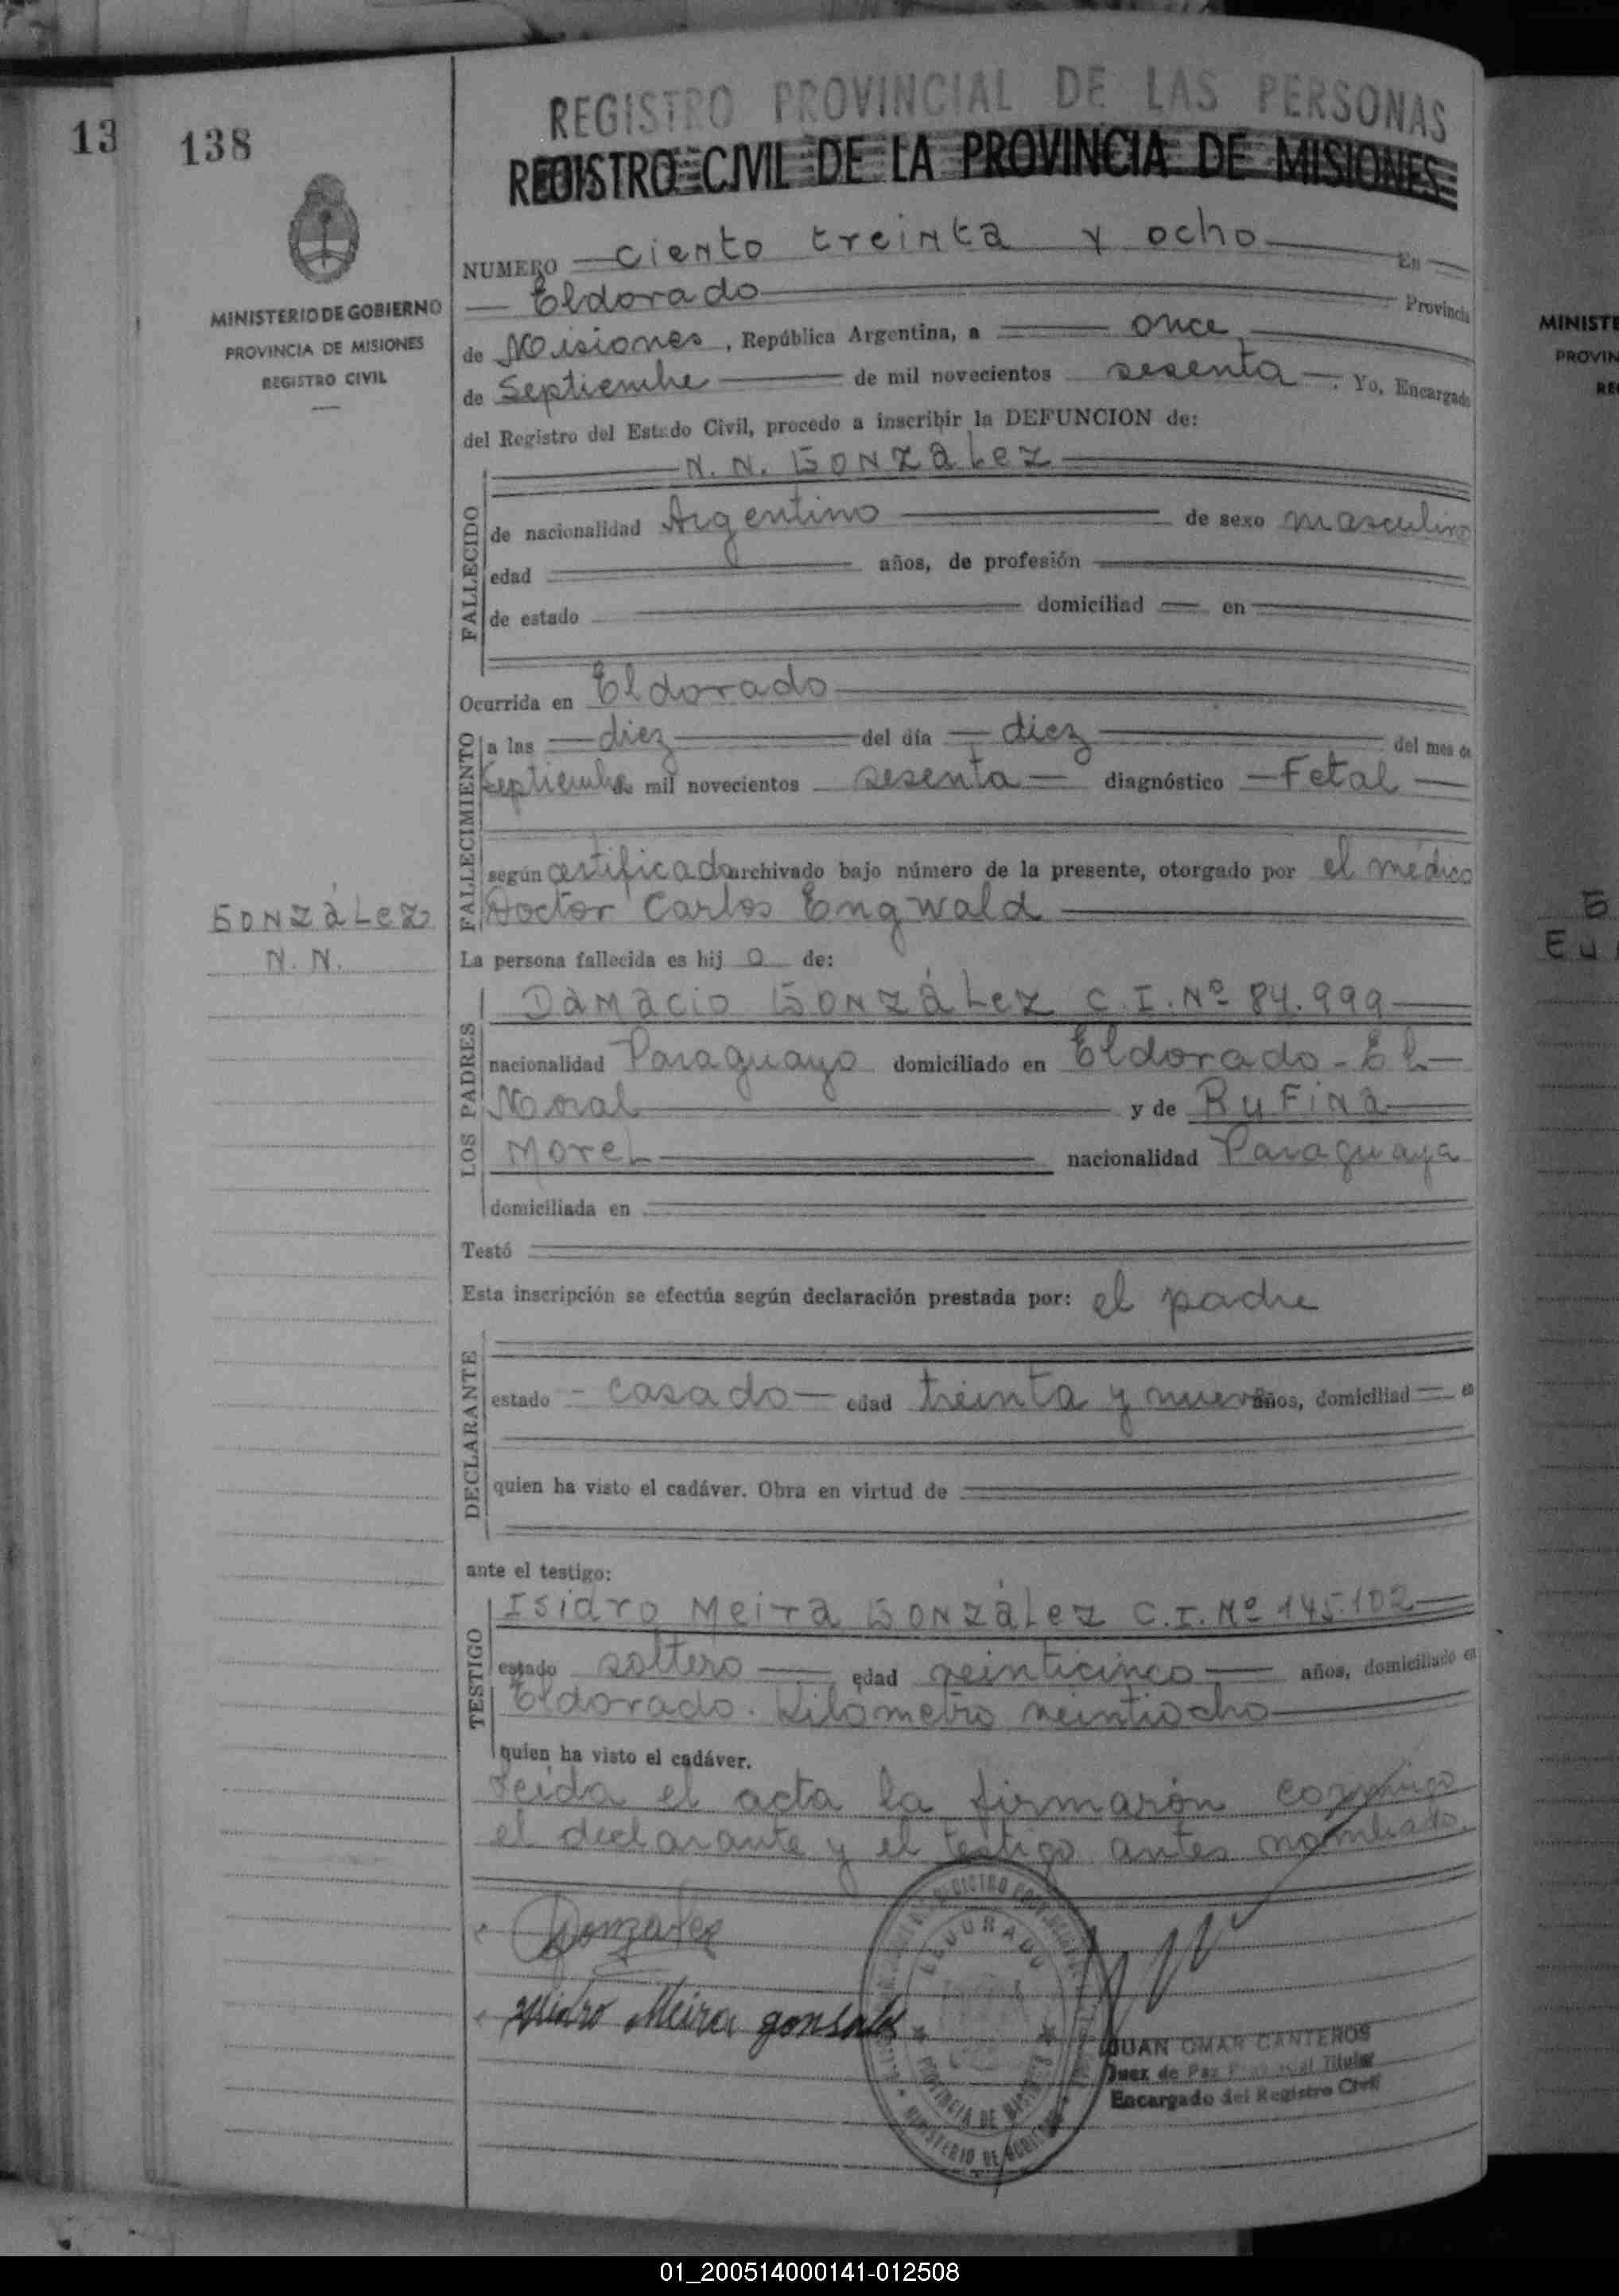 REGISTRO PROVINCIAL DE LAS PERSONAS
REGISTRO CIVIL DE LA PROVINCIA DE MISIONES
13
138
MINISTERIO DE GOBIERNO
PROVINCIA DE MISIONES
REGISTRO CIVIL
NUMERO ciento treinta y ocho En
Eldorado Provincia
de Misiones, República Argentina, a once
de Septiembre de mil novecientos sesenta. Yo, Encargado
del Registro del Estado Civil, procedo a inscribir la DEFUNCION de:
N. N. González
FALLECIDO
de nacionalidad Argentino de sexo masculino
edad años, de profesión
de estado domiciliad en
Ocurrida en Eldorado
FALLECIMIENTO
a las diez del día diez del mes de
Septiembre de mil novecientos sesenta diagnóstico Fetal
según certificado archivado bajo número de la presente, otorgado por el médico
Doctor Carlos Engwald
González
N. N.
La persona fallecida es hij o de:
LOS PADRES
Damacio González C. I. Nº 84.999
nacionalidad Paraguayo domiciliado en Eldorado - El
Moral y de Rufina
Morel nacionalidad Paraguaya
domiciliada en
Testó
Esta inscripción se efectúa según declaración prestada por: el padre
DECLARANTE
estado casado edad treinta y nueve años, domiciliad en
quien ha visto el cadáver. Obra en virtud de
ante el testigo:
TESTIGO
Isidro Meira González C. I. Nº 145.102
estado soltero edad veinticinco años, domiciliado en
Eldorado. Kilómetro veintiocho
quien ha visto el cadáver.
Leida el acta la firmarón conmigo
el declarante y el testigo antes nombrado.
Gonzalez
Isidro Meira gonsales
ELDORADO
PROVINCIA DE MISIONES
MINISTERIO DE GOBIERNO
JUAN OMAR CANTEROS
Juez de Paz Provincial Titular
Encargado del Registro Civil
MINISTE
PROVIN
RE
01_200514000141-012508